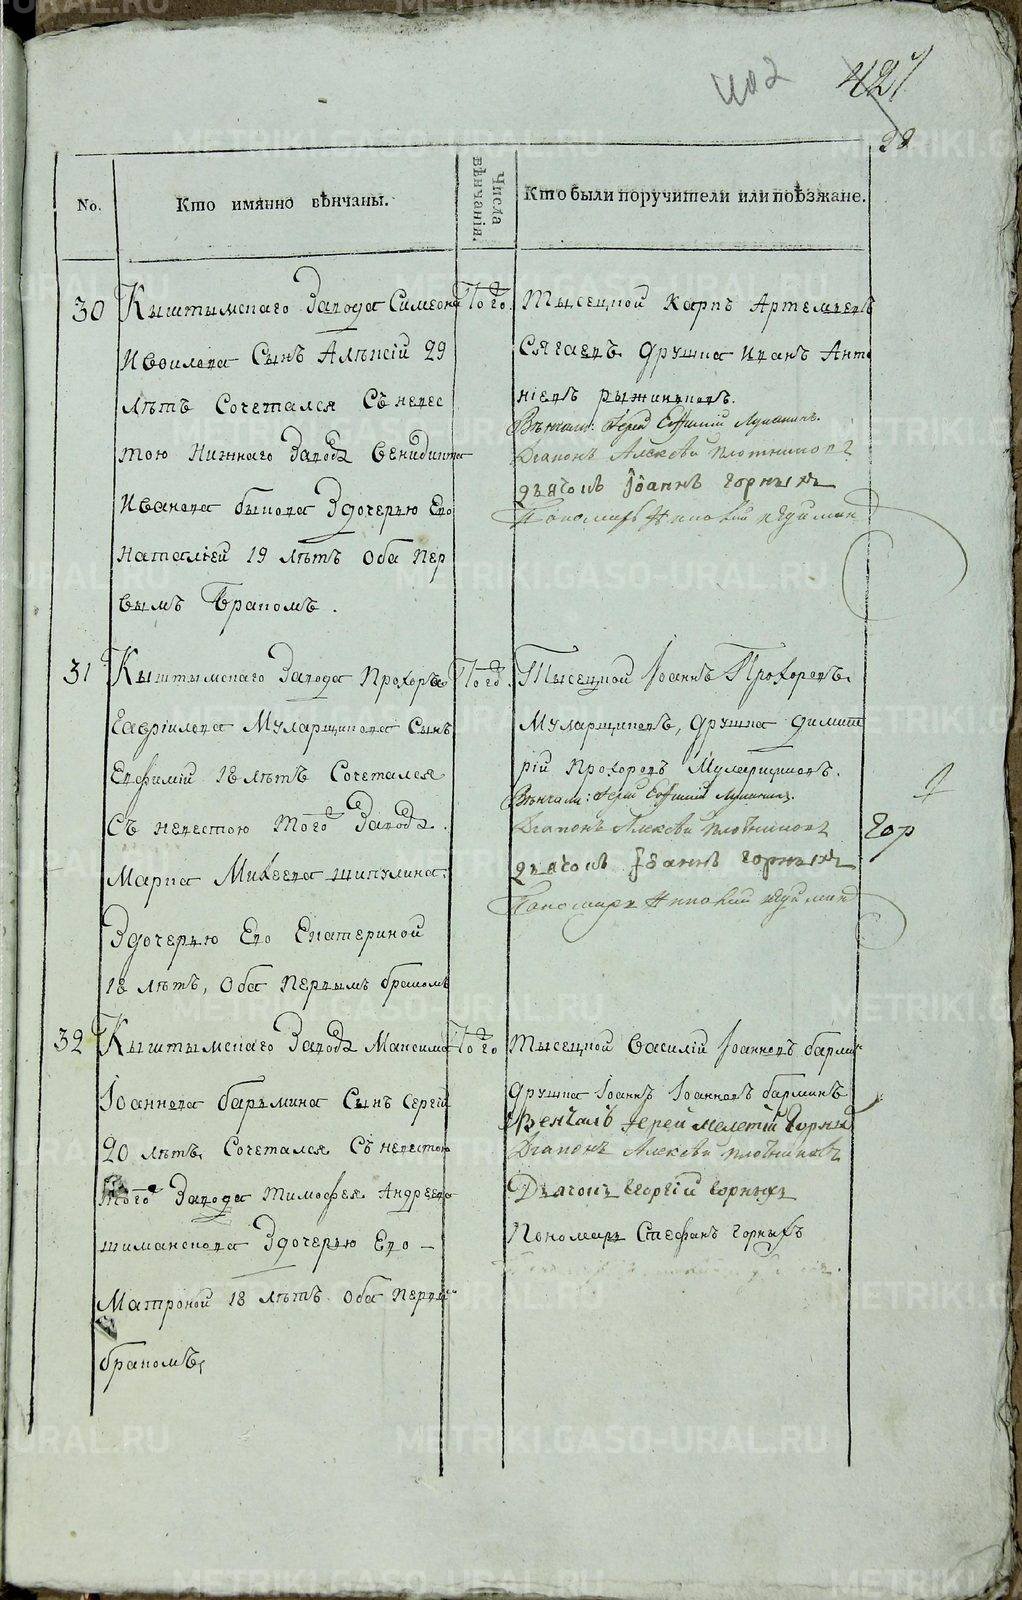 402
427
28
No.
Кто имянно вѣнчаны.
Числа вѣнчанія.
Кто были поручители или поѣзжане.
30
Кыштымскаго Завода Симеона
Ивоилова Сынъ Алѣксій 29
лѣтъ Сочетался Съ невес
тою Нижнаго Завода Венидикта
Иванова быкова Здочерью Его
Наталіей 19 лѣтъ Оба пер
вымъ Бракомъ.
Того.
Тысецкой Карпъ Артемьевъ
Сягаевъ Дружка Иванъ Анто
ніевъ рыжиниковъ.
Вѣнчали: Іерей Евфимій Лупанинъ.
Діаконъ Алексѣй плотниковъ
дьячокъ Іоаннъ Горныхъ
Пономарь
31
Кыштымскаго Завода Прохоръа
Гавріилова Муларщикова Сынъ
Евфимій 18 лѣтъ Сочетался
Съ невестою того Завода
Марка Михеева шипулина
Здочерью Его Екатериной
18 лѣтъ, Оба первымъ бракомъ
Того.
Тысецкой Іоаннъ Прохоровъ
Муларщиковъ, дружка димит
рій прохоровъ Муларщиковъ.
Вѣнчали: Іерей Евфимій Лупанинъ.
Діаконъ Алексѣй плотниковъ
дьячокъ Іоаннъ Горныхъ
Пономарь
Гор
32
Кыштымскаго Завода Максима
Іоаннова бармина Сынъ Сергій
20 лѣтъ, Сочетался Съ невестою
того Завода Тимофея Андреева
шиманскова Здочерью Его
Матроной 18 лѣтъ Оба первы
бракомъ,
Того
Тысецкой Василій Іоанновъ бармин
дружка Іоаннъ Іоанновъ барминъ
Венчалъ Іерей Мелетій Горныхъ
Діаконъ Алексѣй плотниковъ
Дьячокъ Георгій Горныхъ
Пономарь Стефанъ Горныхъ
METRIKI.GASO-URAL.RU